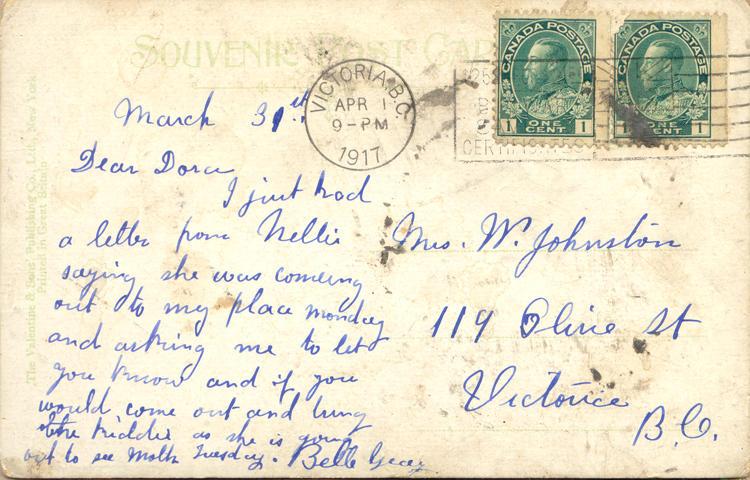 SOUVENIR POST CARD
CANADA POSTAGE
ONE CENT
1 1
CANADA POSTAGE
ONE CENT
1 1
VICTORIA, B.C.
APR 1
9-PM
1917
The Valentine & Sons Publishing Co., Ltd., New York
Printed in Great Britain
March 31st
Dear Dora
I just had
a letter from Nellie
saying she was comeing
out to my place monday
and asking me to let
you know and if you
would come out and bring
the kiddie as she is going
out to see Tuesday. Belle
Mrs. W. Johnston
119 Olive St
Victoria
B.C.